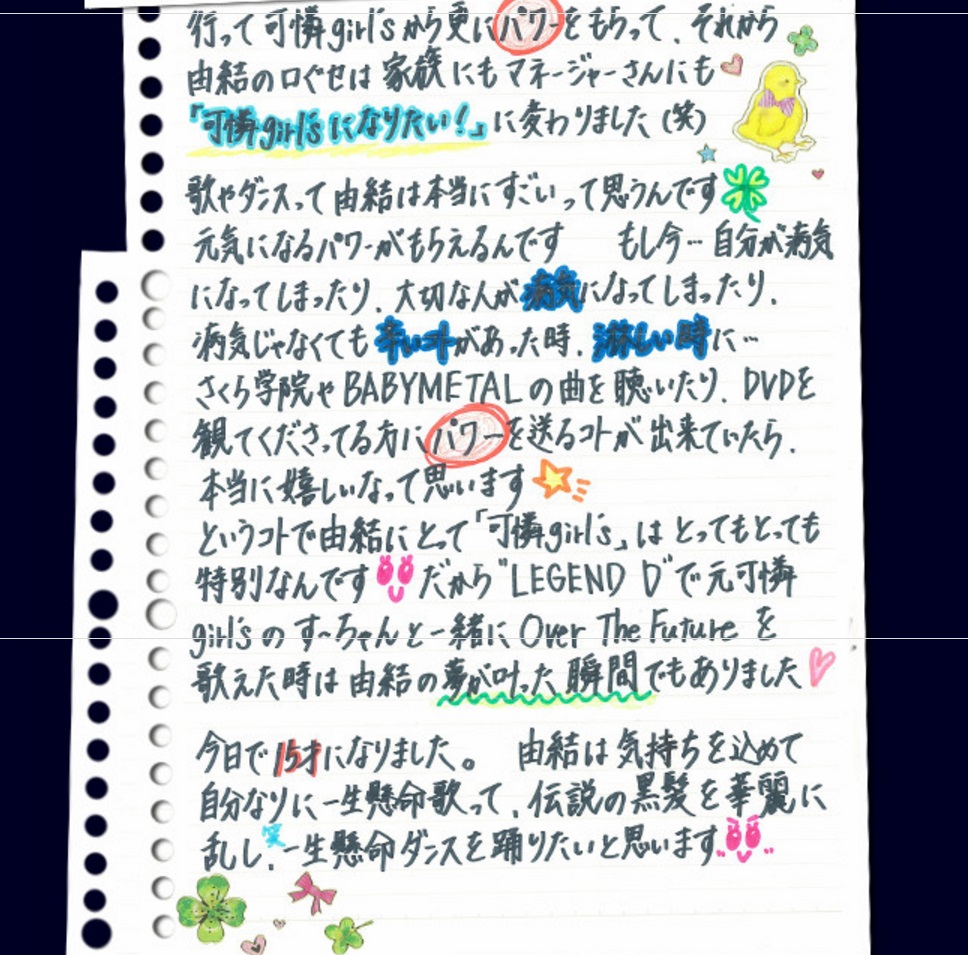 行って可憐girl'sから更にパワーをもらって、それから
由結の口ぐせは家族にもマネージャーさんにも
「可憐girl'sになりたい！」に変わりました(笑)
歌やダンスって由結は本当にすごいって思うんです
元気になるパワーがもらえるんです　もし今…自分が病気
になってしまったり、大切な人が病気になってしまったり、
病気じゃなくても辛いコトがあった時、淋しい時に…
さくら学院やBABYMETALの曲を聴いたり、DVDを
観てくださってる方にパワーを送るコトが出来ていたら、
本当に嬉しいなって思います
というコトで由結にとって「可憐girl's」はとってもとっても
特別なんです だから"LEGEND D"で元可憐
girl'sのすぅちゃんと一緒にOver The Futureを
歌えた時は由結の夢が叶った瞬間でもありました
今日で15才になりました。　由結は気持ちを込めて
自分なりに一生懸命歌って、伝説の黒髪を華麗に
乱し、笑 一生懸命ダンスを踊りたいと思います